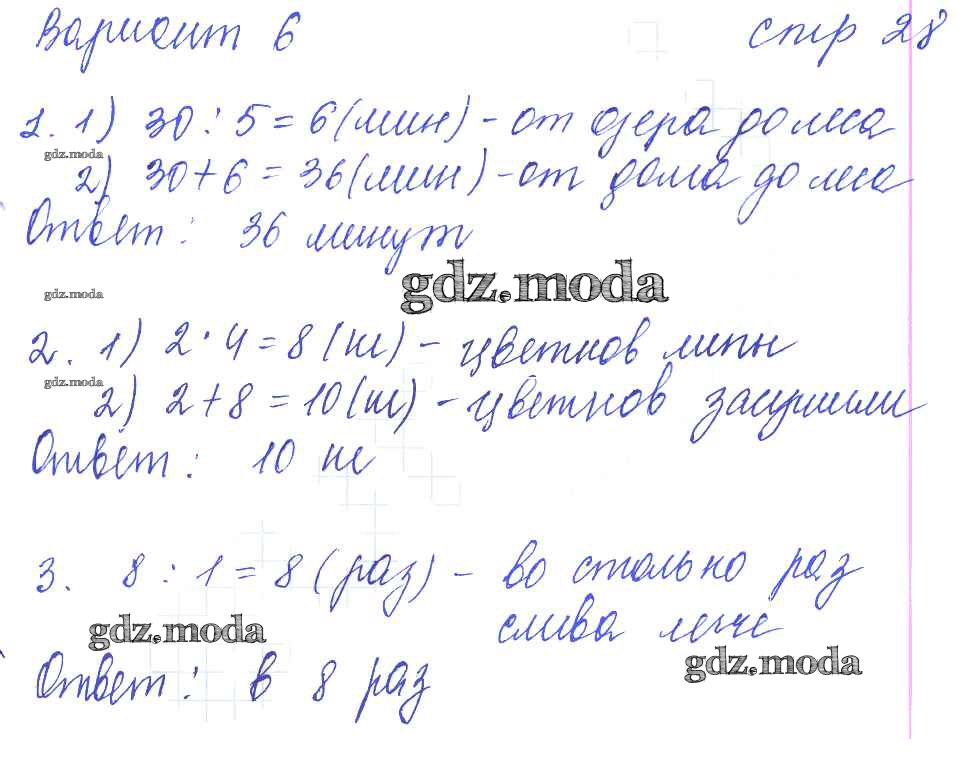 Вариант 6 стр 28
1. 1) 30 : 5 = 6 (мин) - от озера до леса
gdz.moda
2) 30 + 6 = 36 (мин) - от дома до леса
Ответ: 36 минут
gdz.moda
gdz.moda
2. 1) 2 · 4 = 8 (кг) - цветков липы
gdz.moda
2) 2 + 8 = 10 (кг) - цветков засушили
Ответ: 10 кг
3. 8 : 1 = 8 (раз) - во столько раз
слива легче
gdz.moda
gdz.moda
Ответ: в 8 раз